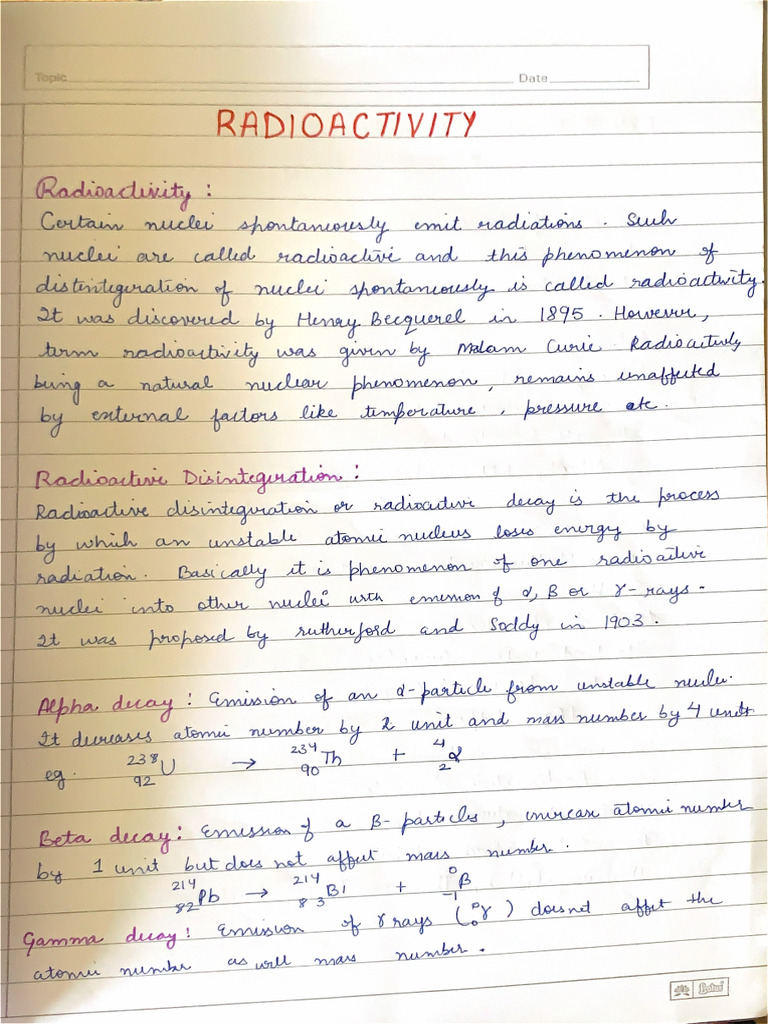 Topic Date
RADIOACTIVITY
Radioactivity :
Certain nuclei spontaneously emit radiations . Such
nuclei are called radioactive and this phenomenon of
distintegeration of nuclei spontaneously is called radioactivity.
It was discovered by Henry Becquerel in 1895 . However,
term radioactivity was given by Madam Curie Radioactivity
being a natural nuclear phenomenon, remains unaffected
by external factors like temperature , pressure etc.
Radioactive Disintegeration :
Radioactive disintegeration or radioactive decay is the process
by which an unstable atomic nucleus loses energy by
radiation. Basically it is phenomenon of one radioactive
nuclei into other nuclei with emission of α, β or γ-rays.
It was proposed by rutherford and Soddy in 1903 .
Alpha decay : Emission of an α-particle from unstable nuclei.
It decreases atomic number by 2 unit and mass number by 4 units
eg. ²³⁸₉₂U → ²³⁴₉₀Th + ⁴₂α
Beta decay : Emission of a β- particles , increase atomic number
by 1 unit but does not affect mass number .
²¹⁴₈₂Pb → ²¹⁴₈₃Bi + ⁰₋₁β
Gamma decay : Emission of γ rays (⁰₀γ) doesnot affect the
atomic number as well mass number .
Lotus